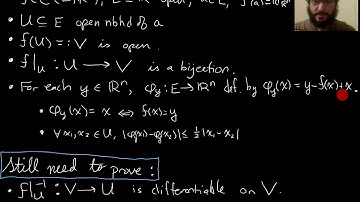 • U ⊆ E open nbhd of a
• f(U) =: V is open.
• f|_U : U → V is a bijection.
• For each y ∈ ℝⁿ, φ_y : E → ℝⁿ def. by φ_y(x) = y - f(x) + x.
• φ_y(x) = x ⟺ f(x) = y
• ∀ x₁, x₂ ∈ U, |φ_y(x₁) - φ_y(x₂)| ≤ ½ |x₁ - x₂|
Still need to prove:
• f|_U⁻¹ : V → U is differentiable on V.